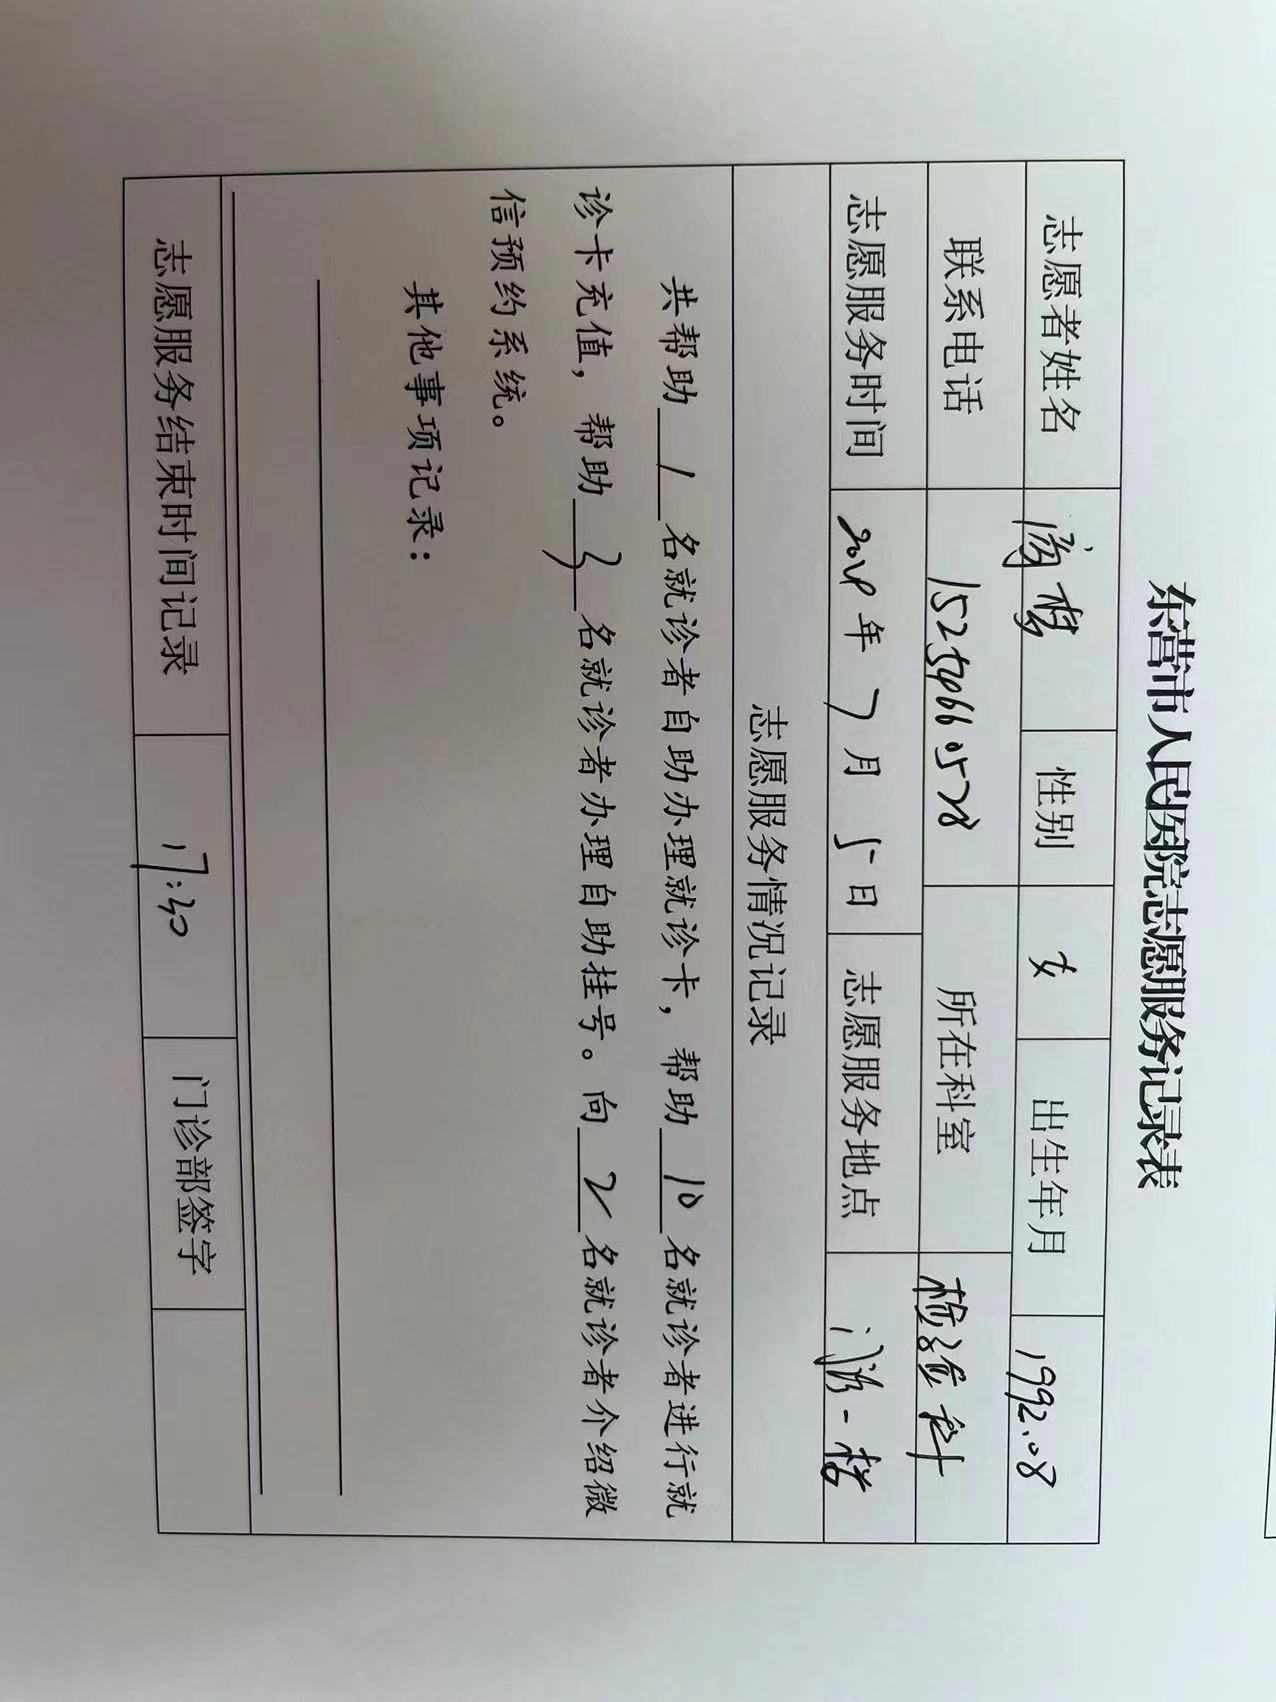 东营市人民医院志愿服务记录表
志愿者姓名 梦 性别 女 出生年月 1992.08
联系电话 所在科室 检验科
志愿服务时间 年 7 月 5 日 志愿服务地点 门诊一楼
志愿服务情况记录
共帮助 1 名就诊者自助办理就诊卡，帮助 10 名就诊者进行就
诊卡充值，帮助 3 名就诊者办理自助挂号。向 2 名就诊者介绍微
信预约系统。
其他事项记录：
志愿服务结束时间记录 17:30 门诊部签字